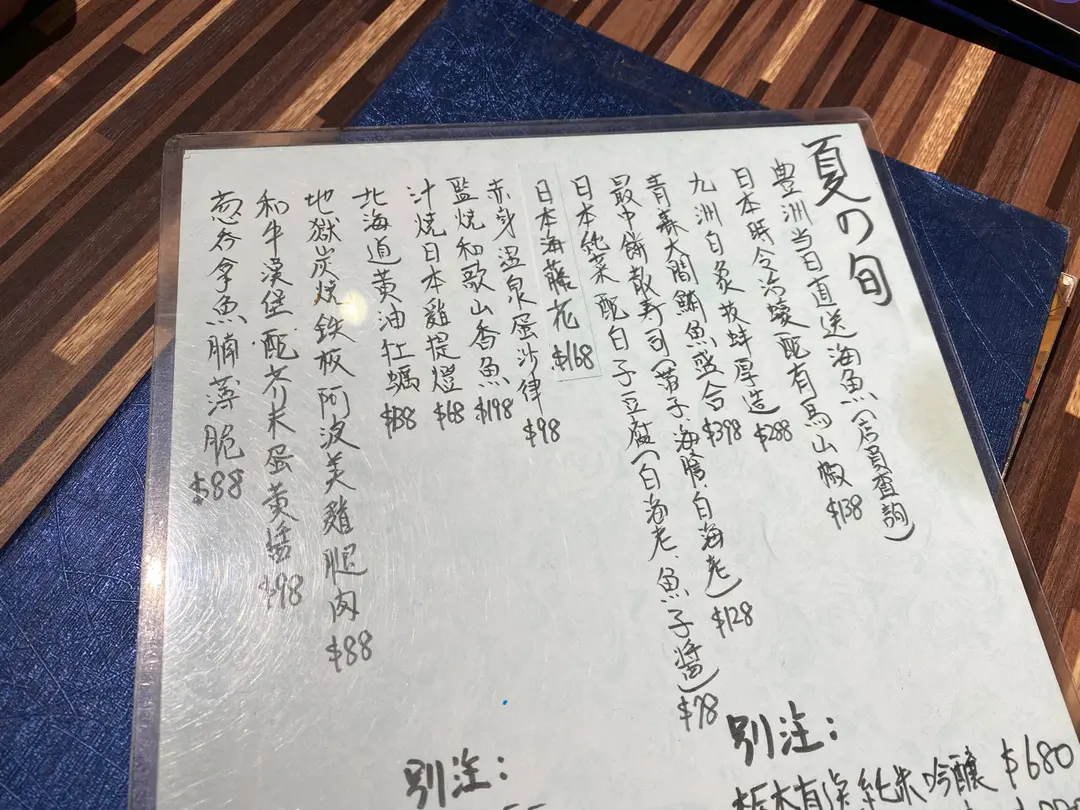 夏の旬
豊洲当日直送海魚(店員查詢)
日本時令岩蠔配有馬山椒 $138
九洲白炙披蚌厚造 $288
青森大間鯛魚盛合 $398
最中餅散寿司(帶子海膽白海老) $128
日本純菜配白子豆腐(白海老、魚子醬) $78
日本海藤花 $168
赤身溫泉蛋沙律 $98
監燒和歌山香魚 $198
汁燒日本雞提燈 $68
北海道黃油牡蠣 $138
地獄炭燒鉄板阿波美雞腿肉 $88
和牛漢堡配芥末蛋黃醬 $98
吞拿魚腩薄脆 $88
別注:
純米吟釀 $680
別注: